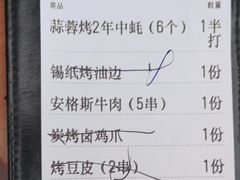 菜品 数量
蒜蓉烤2年中蚝(6个) 1半
打
锡纸烤油边 1份
安格斯牛肉(5串) 1份
炭烤卤鸡爪 1份
烤豆皮(2串) 1份